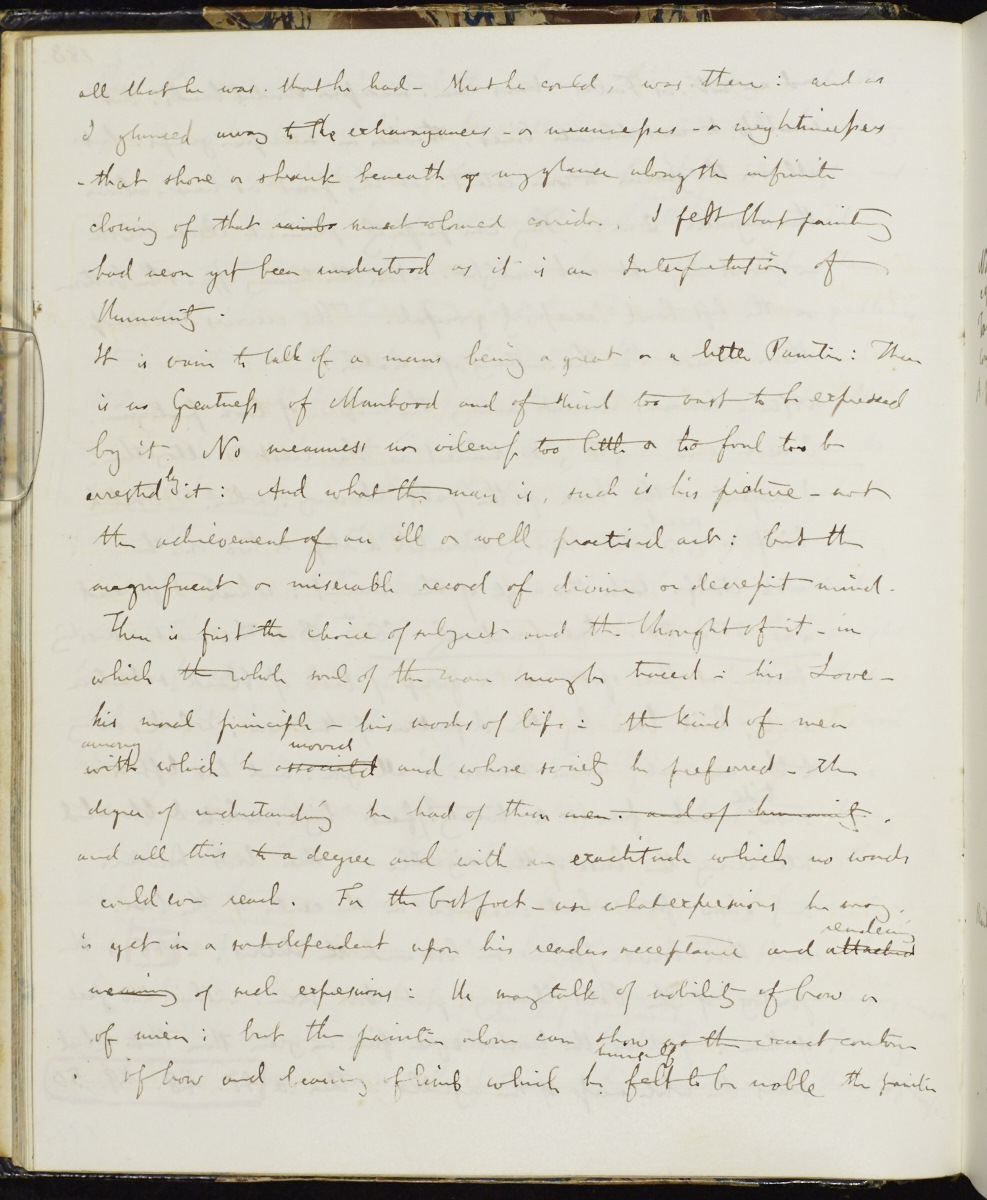 all that he was. that he had - that he could, was there: and as
I glanced away to the extravagances - or meannesses - or mightinesses
- that shone or shrunk beneath my glance along the infinite
closing of that rainbo sunset coloured corridor, I felt that painting
had never yet been understood as it is an Interpretation of
Humanity.
It is vain to talk of a mans being a great or a little Painter: There
is no Greatness of Manhood and of mind too vast to be expressed
by it. No meanness nor vileness too little or too foul to be
arrested by it: And what the man is, such is his picture - not
the achievement of an ill or well practised art: but the
magnificent or miserable record of divine or decrepit mind.
There is first the choice of subject and the thought of it - in
which the whole soul of the man may be traced: his Love -
his moral principle - his modes of life: the kind of men
among moved
with which he associated and whose society he preferred - the
degree of understanding he had of these men. and of humanity.
and all this to a degree and with an exactitude which no words
could ever reach. For the best poet - use what expressions he may,
rendering
is yet in a sort dependent upon his readers acceptance and attached
meaning of such expressions: He may talk of nobility of brow or
of mien: but the painter alone can show us the exact contour
himself
of brow and bearing of limb which he felt to be noble the painter